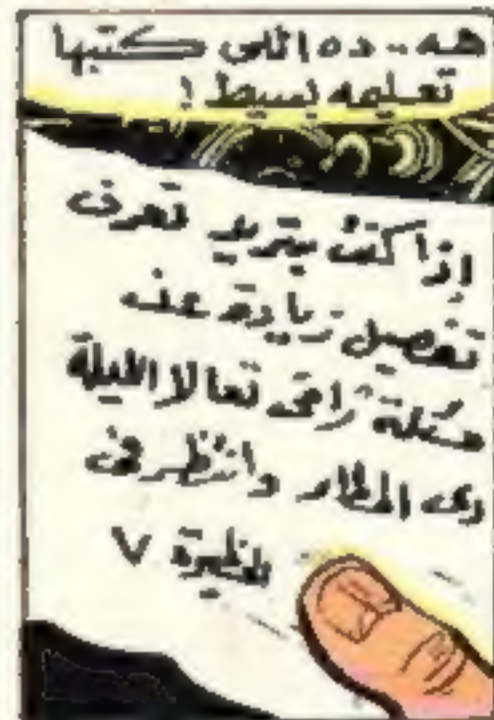 هه - ده اللى كتبها
تعليمه بسيط !
إذا كنت بتريد تعرف
تفصيل زيادة عنه
مسئلة زاقى تعالا الليلة
دى المطار وانتظر فى
للظيرة ٧